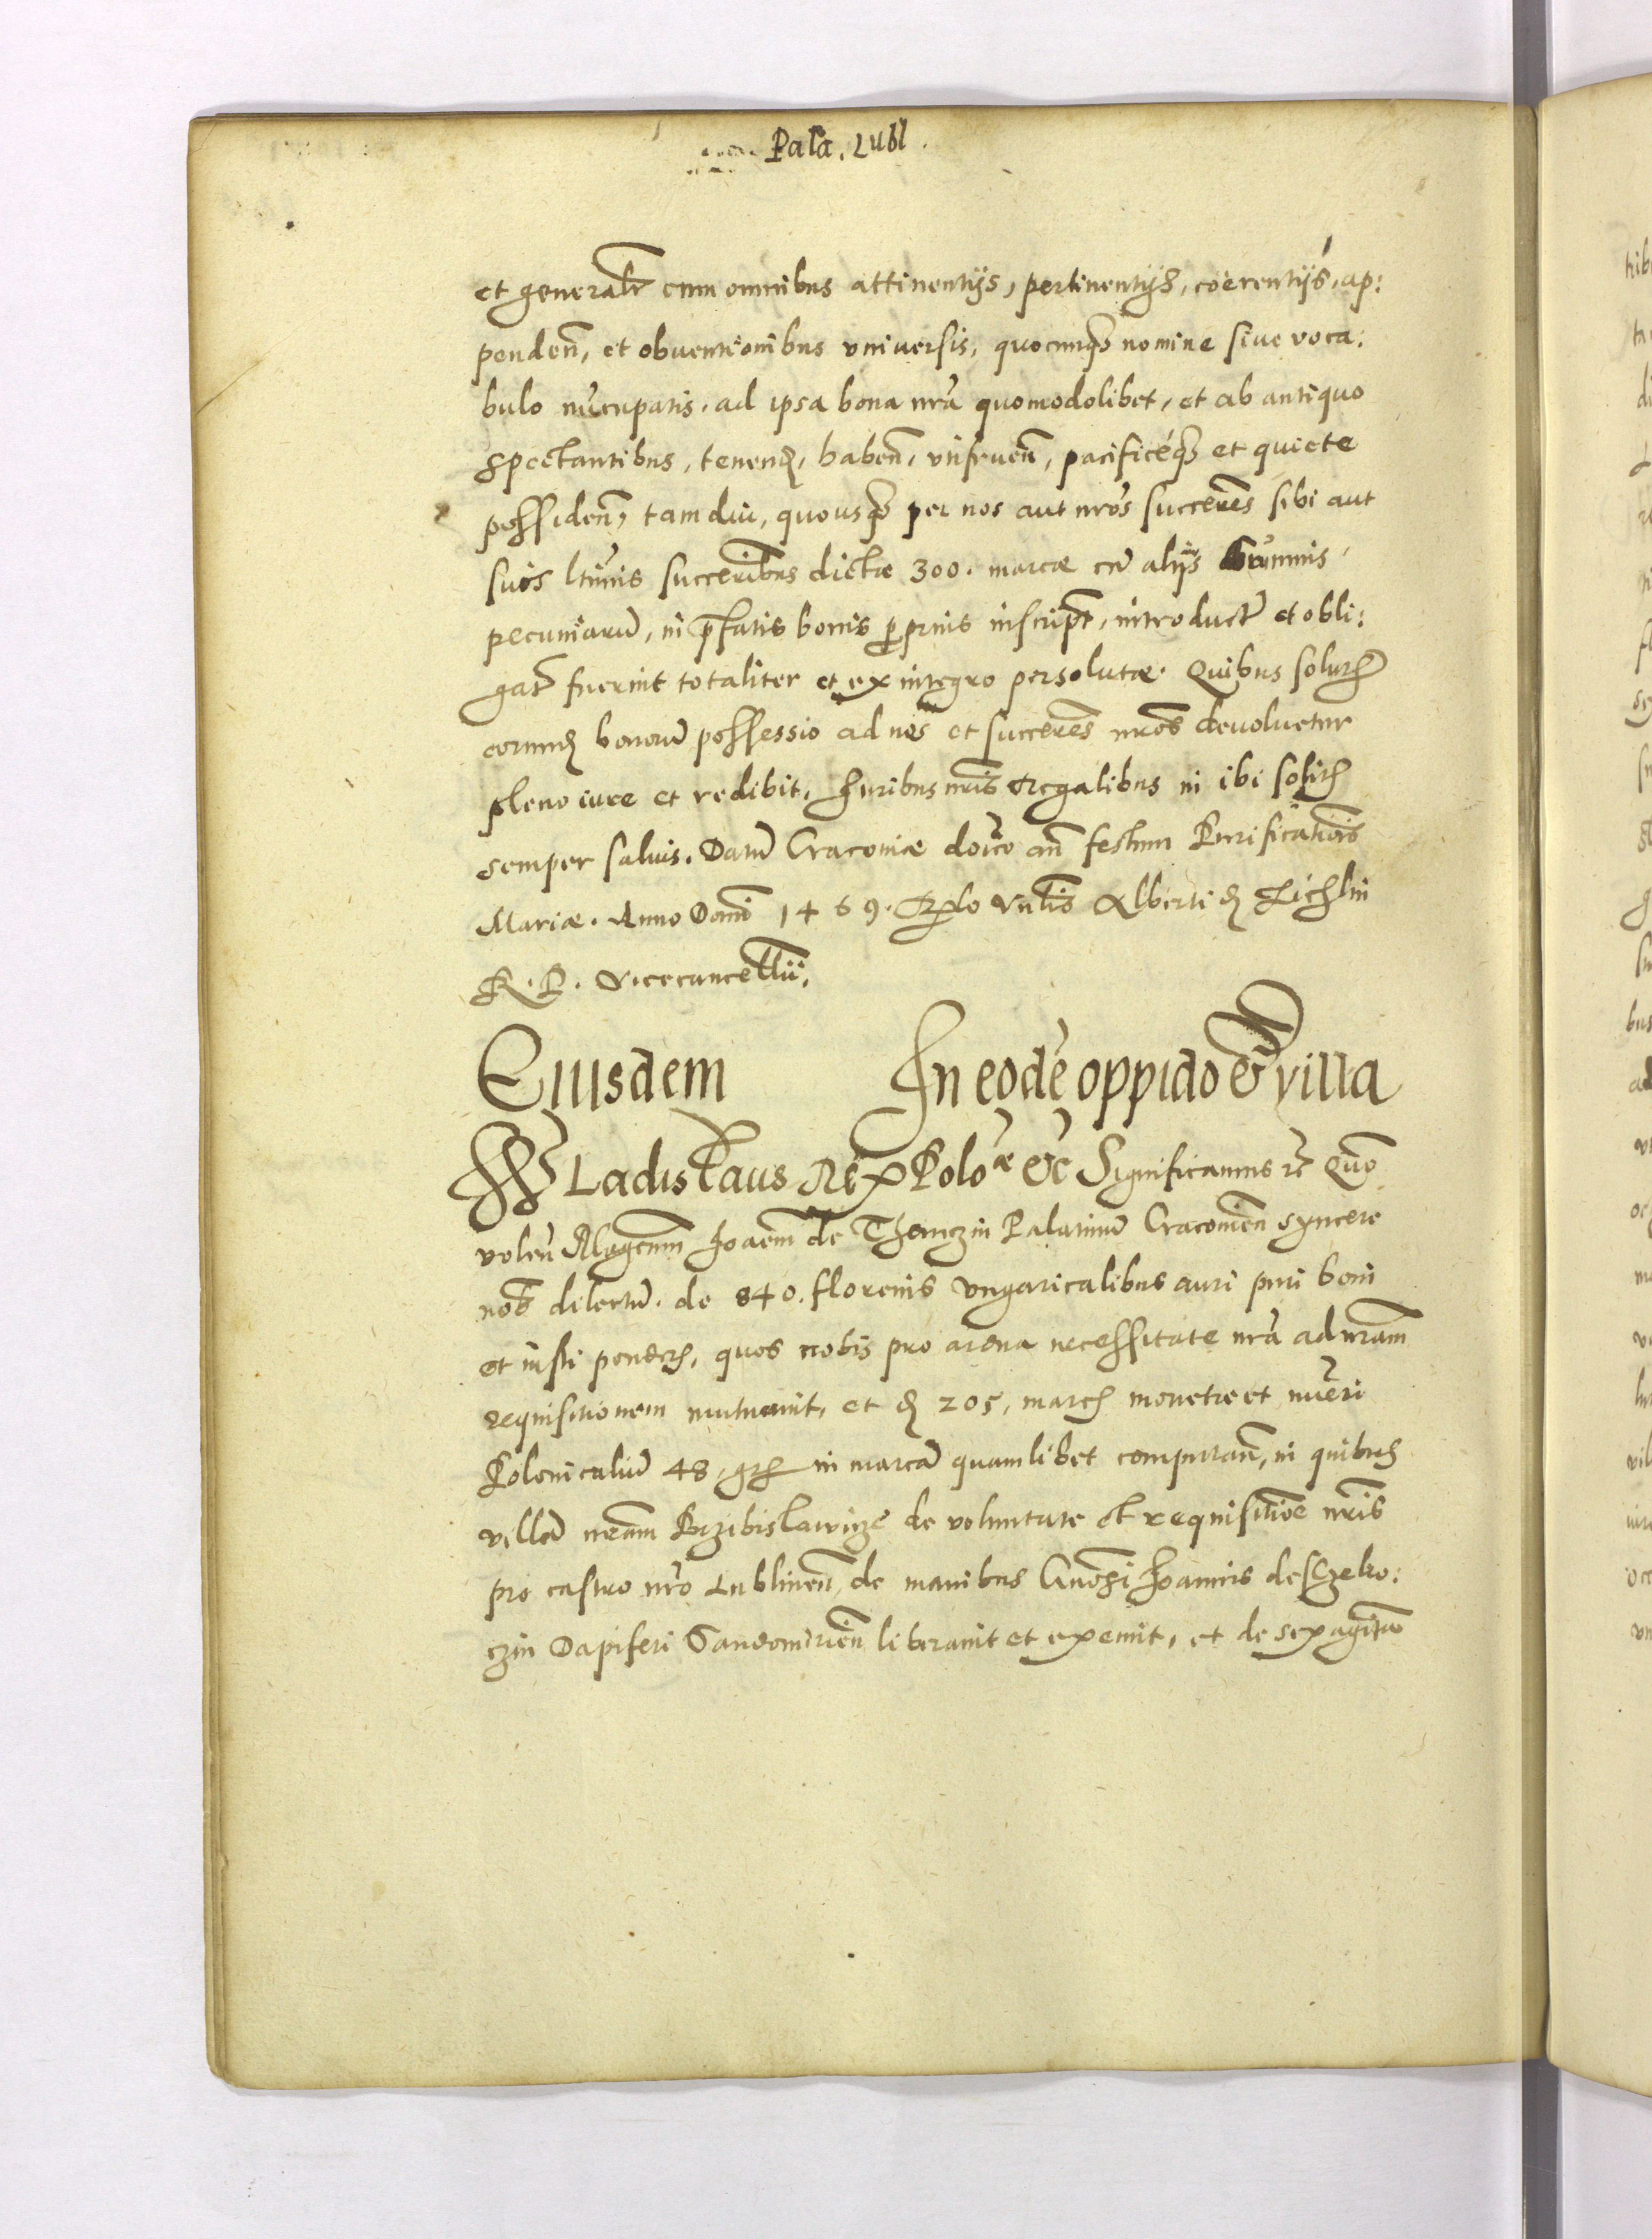 Pala. Lubl.
et generalr cum omnibus attinentijs, pertinentijs, coerentijs, ap:
penden̄, et obventionibus vniversis, quocunq₃ nomine sive voca:
bulo nūcupatis, ad ipsa bona nr̄a quomodolibet, et ab antiquo
spectantibus, tenend, haben̄, vtifruen̄, pacificeq₃ et quiete
possiden̄, tam diu, quousq₃ per nos aut nr̄os succeres̄ sibi aut
suis ltimis succeribus dictæ 300. marcæ cū alijs summis
pecuniarū, in p̄fatis bonis p prius inscript, introduct et obli:
gat fuerint totaliter et ex integro persolutæ. Quibus solutis
eorund bonorū possessio ad nos et succeres̄ nros devoluetur
pleno iure et redibit, Juribus nris Regalibus in ibi solitis
semper salvis. Datū Cracoviæ doico an̄ festum Purificationis
Mariæ. Anno Domi 1469. Rlo Vnlis Alberti d Zichlin
R. P. Vicecancellii.
Eiusdem In eodē oppido & villa
Wladislaus Rex Poloæ &c Significamus &c Quo
volen̄ Magcum Joaem de Thenczin Palatinū Cracovien̄ syncere
nob̄ dilectū. de 840. florenis vngaricalibus auri puri boni
et iusti ponderis, quos nobis pro ardua necessitate nr̄a ad nram
requisitionem mutuavit, et d 205, marcis monetæ et nūeri
Polonicaliū 48, gr in marcā quamlibet computan̄, in quibus
villā nram Przibislawicze de voluntate et requisitioe nris
pro castro nro Lublinen̄, de manibus Gnosi Joannis de Sczeko:
czin Dapiferi Sandomirien̄ liberavit et exemit, et de sexaginta